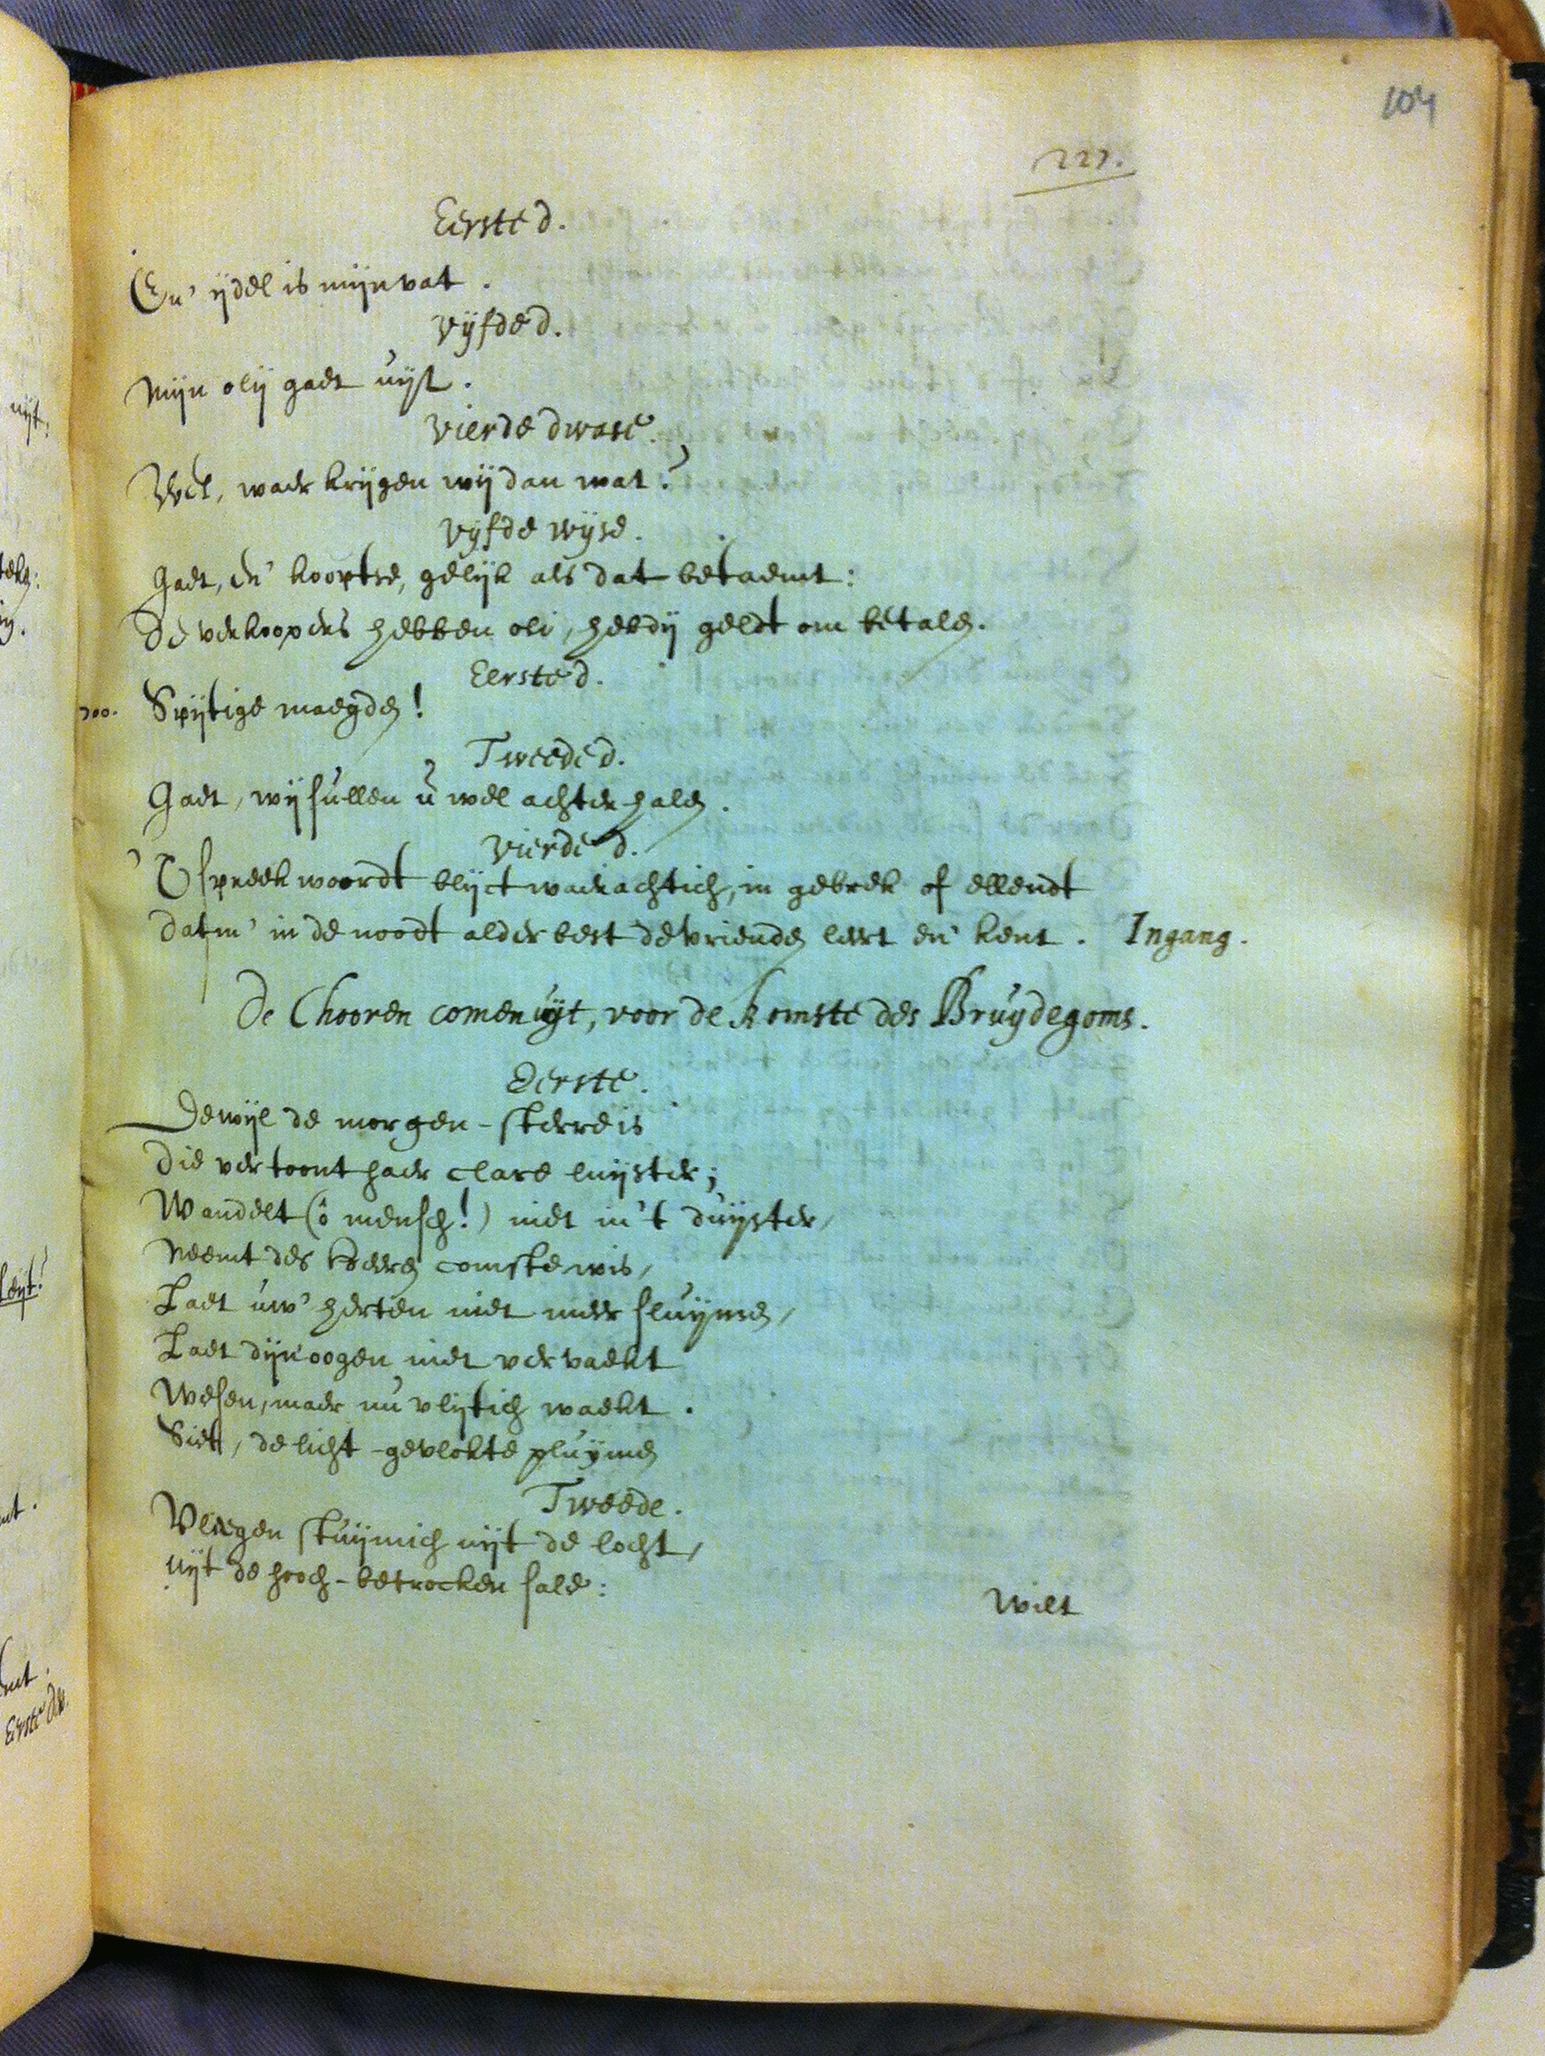 104
227.
Eerste d.
En' ijdel is mijn vat.
Vijfde d.
Mijn olij gaet uijt.
Vierde dwase.
Wel, waer krijgen wij dan wat?
Vijfde wijse.
Gaet, en' kooptse, gelijk als dat betaemt:
De verkoopers hebben oli, hebdij geldt om betalen.
Eerste d.
700. Spijtige maegden!
Tweede d.
Gaet, wij sullen u wel achterhalen.
Vierde d.
'T spreekwoordt blijct waerachtich, in gebrek of ellendt
Datm' in de noodt alderbest de vrienden leert en' kent. Ingang.
De Chooren comen uijt, voor de komste des Bruijdegoms.
Eerste.
Dewijl de morgen-sterre is
Die vertoont haer clare luijster;
Wandelt (ô mensch!) niet in't duijster,
Neemt des Heeren comste wis,
Laet uw' herten niet meer sluijmen,
Laet dijn' oogen niet vervaekt
Wesen, maer nu vlijtich waekt.
Siet, de licht-gevlokte pluijmen
Tweede.
Vliegen stuijmich uijt de locht,
uijt de hooch-betrocken sale:
Wilt